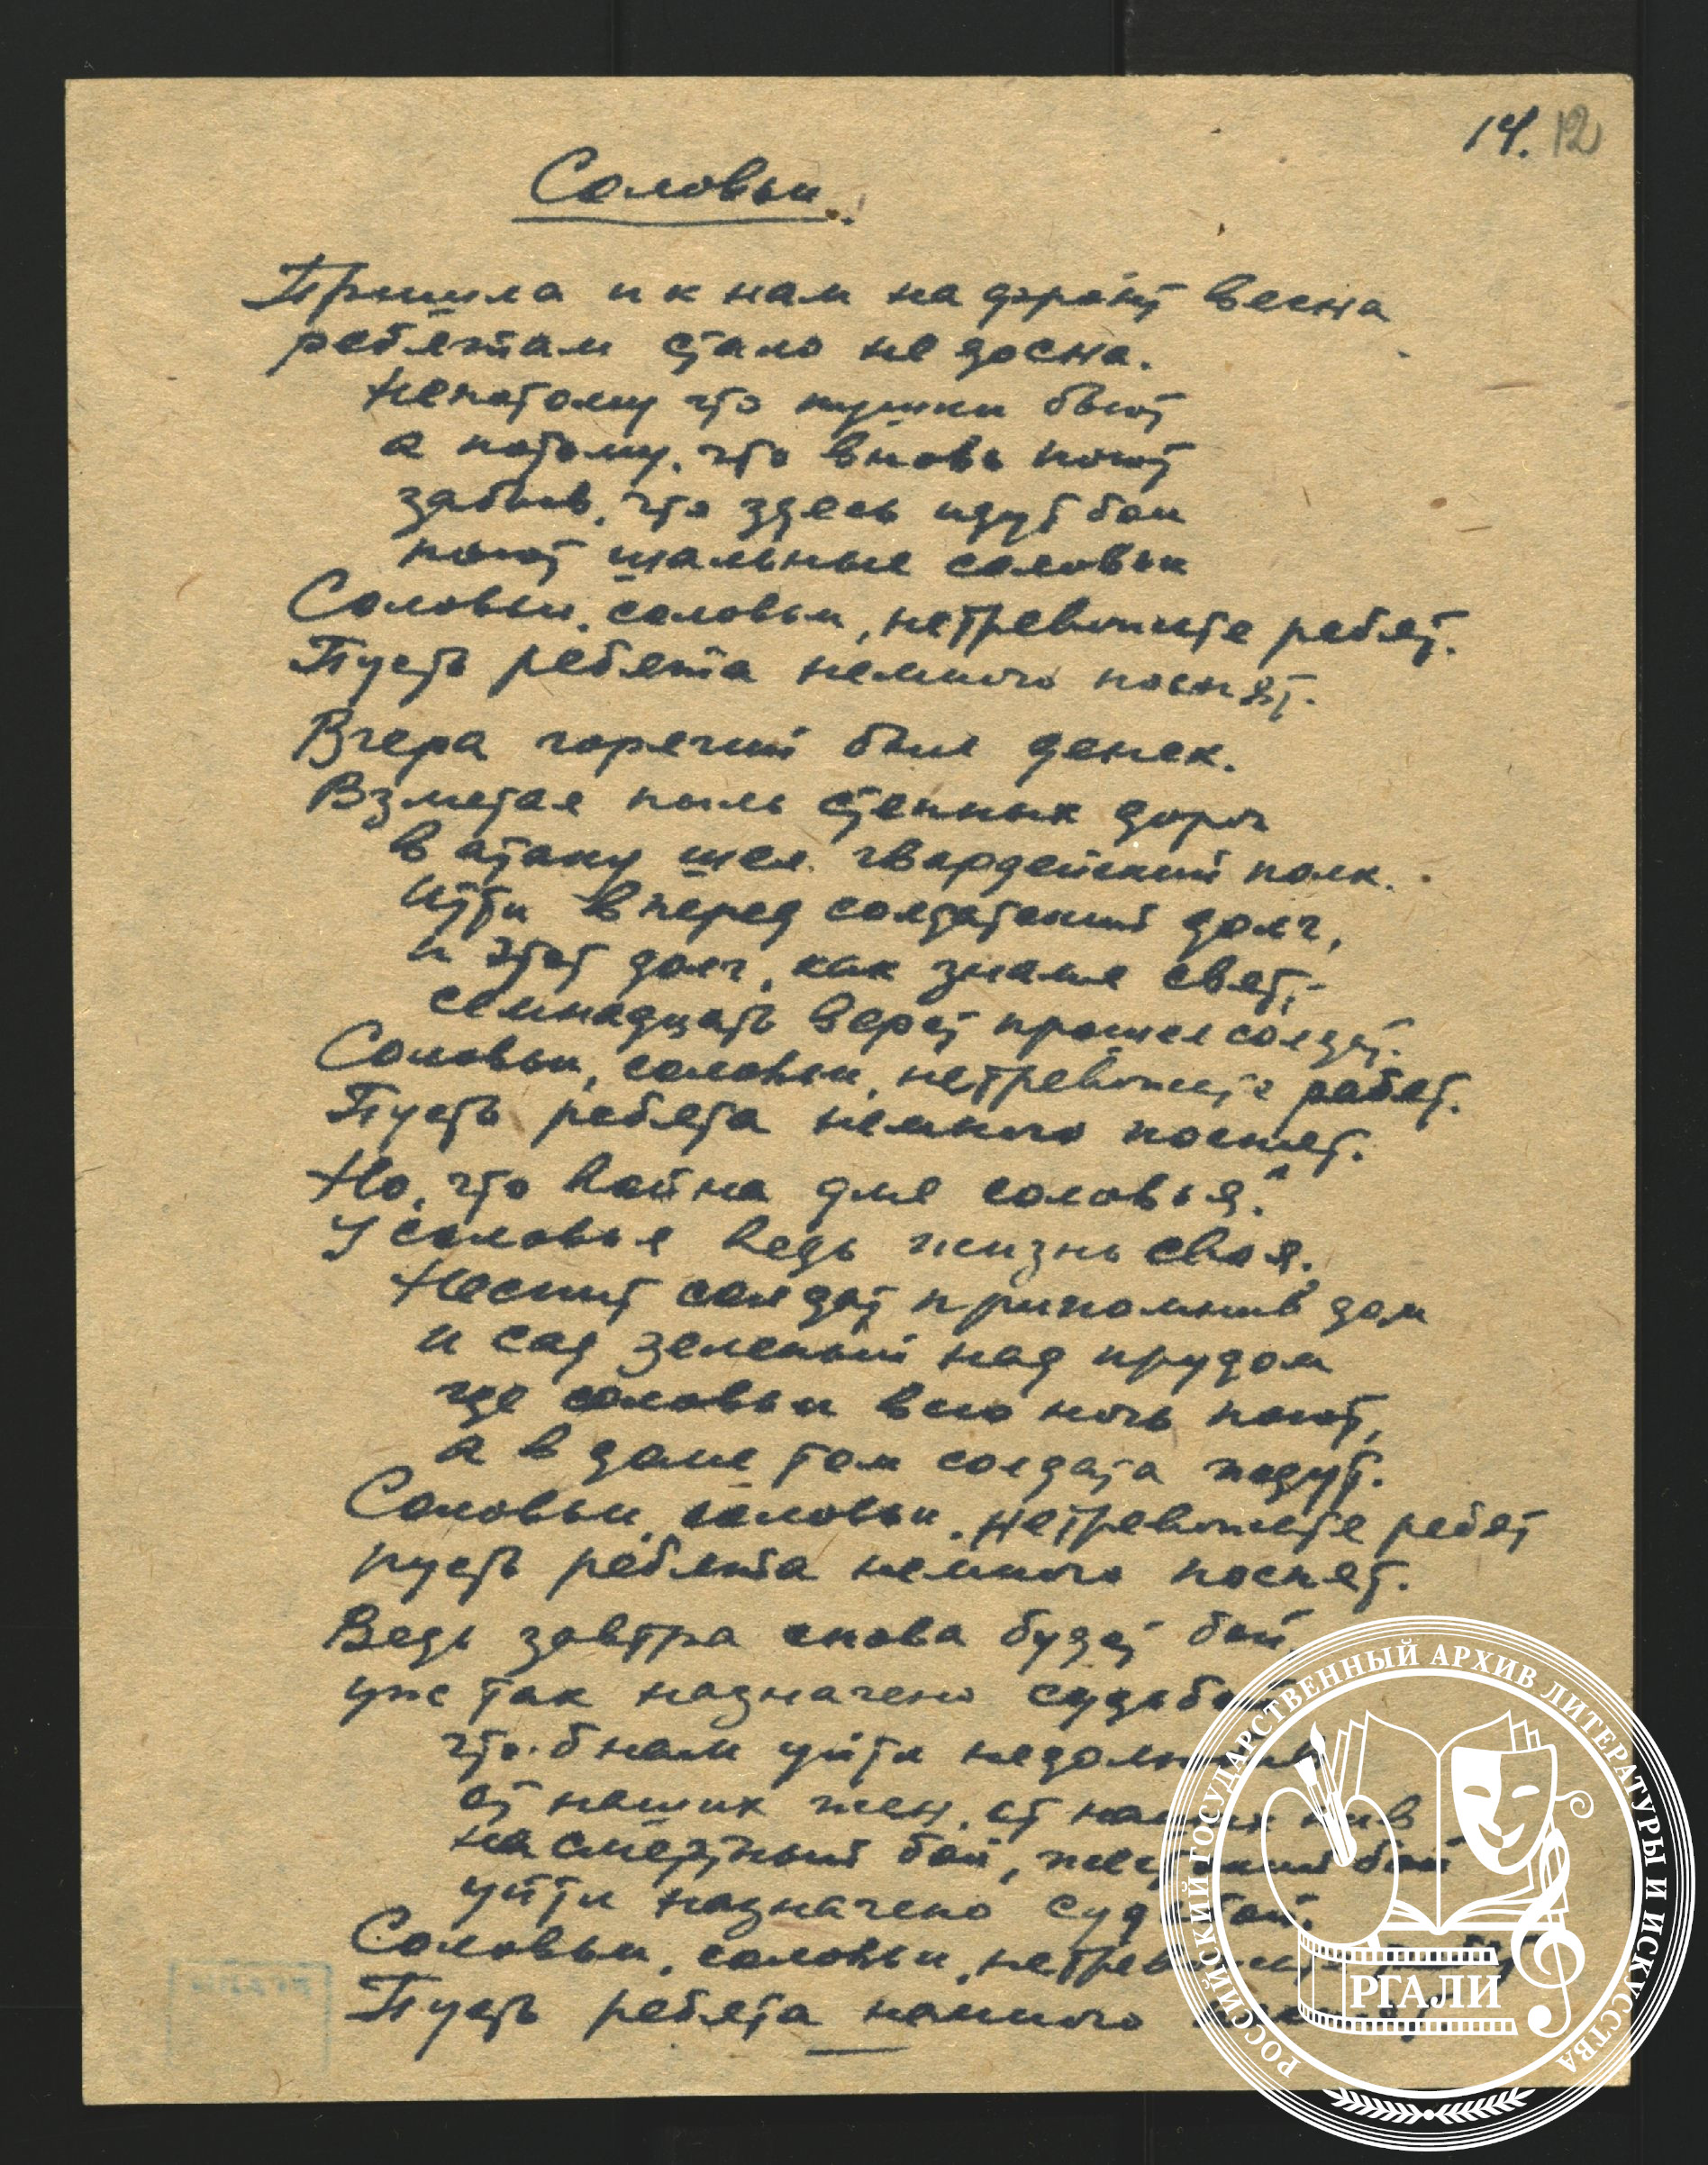 14. 12
Соловьи.
Пришла и к нам на фронт весна
ребятам стало не до сна.
Непотому что пушки бьют
а потому, что вновь поют
забыв, что здесь идут бои
поют шальные соловьи
Соловьи, соловьи, нетревожьте ребят.
Пусть ребята немного поспят.
Вчера горячий был денек.
Взметая пыль степных дорог
в атаку шел гвардейский полк.
Идти вперед солдатский долг,
и этот долг, как знамя свят,-
семнадцать верст прошел солдат.
Соловьи, соловьи, нетревожьте ребят.
Пусть ребята немного поспят.
Но, что война для соловья.
У соловья ведь жизнь своя.
Неспит солдат припомнив дом
и сад зеленый над прудом
где соловьи всю ночь поют,
а в доме том солдата ждут.
Соловьи, соловьи, нетревожьте ребят
пусть ребята немного поспят.
Ведь завтра снова будет бой
уж так назначено судьбой
что.б нам уйти недолюбив
от наших жен, от наших нив
на смертный бой, жестокий бой
уйти назначено судьбой.
Соловьи, соловьи, нетревожьте
Пусть ребята немного
РОССИЙСКИЙ ГОСУДАРСТВЕННЫЙ АРХИВ ЛИТЕРАТУРЫ И ИСКУССТВА
РГАЛИ